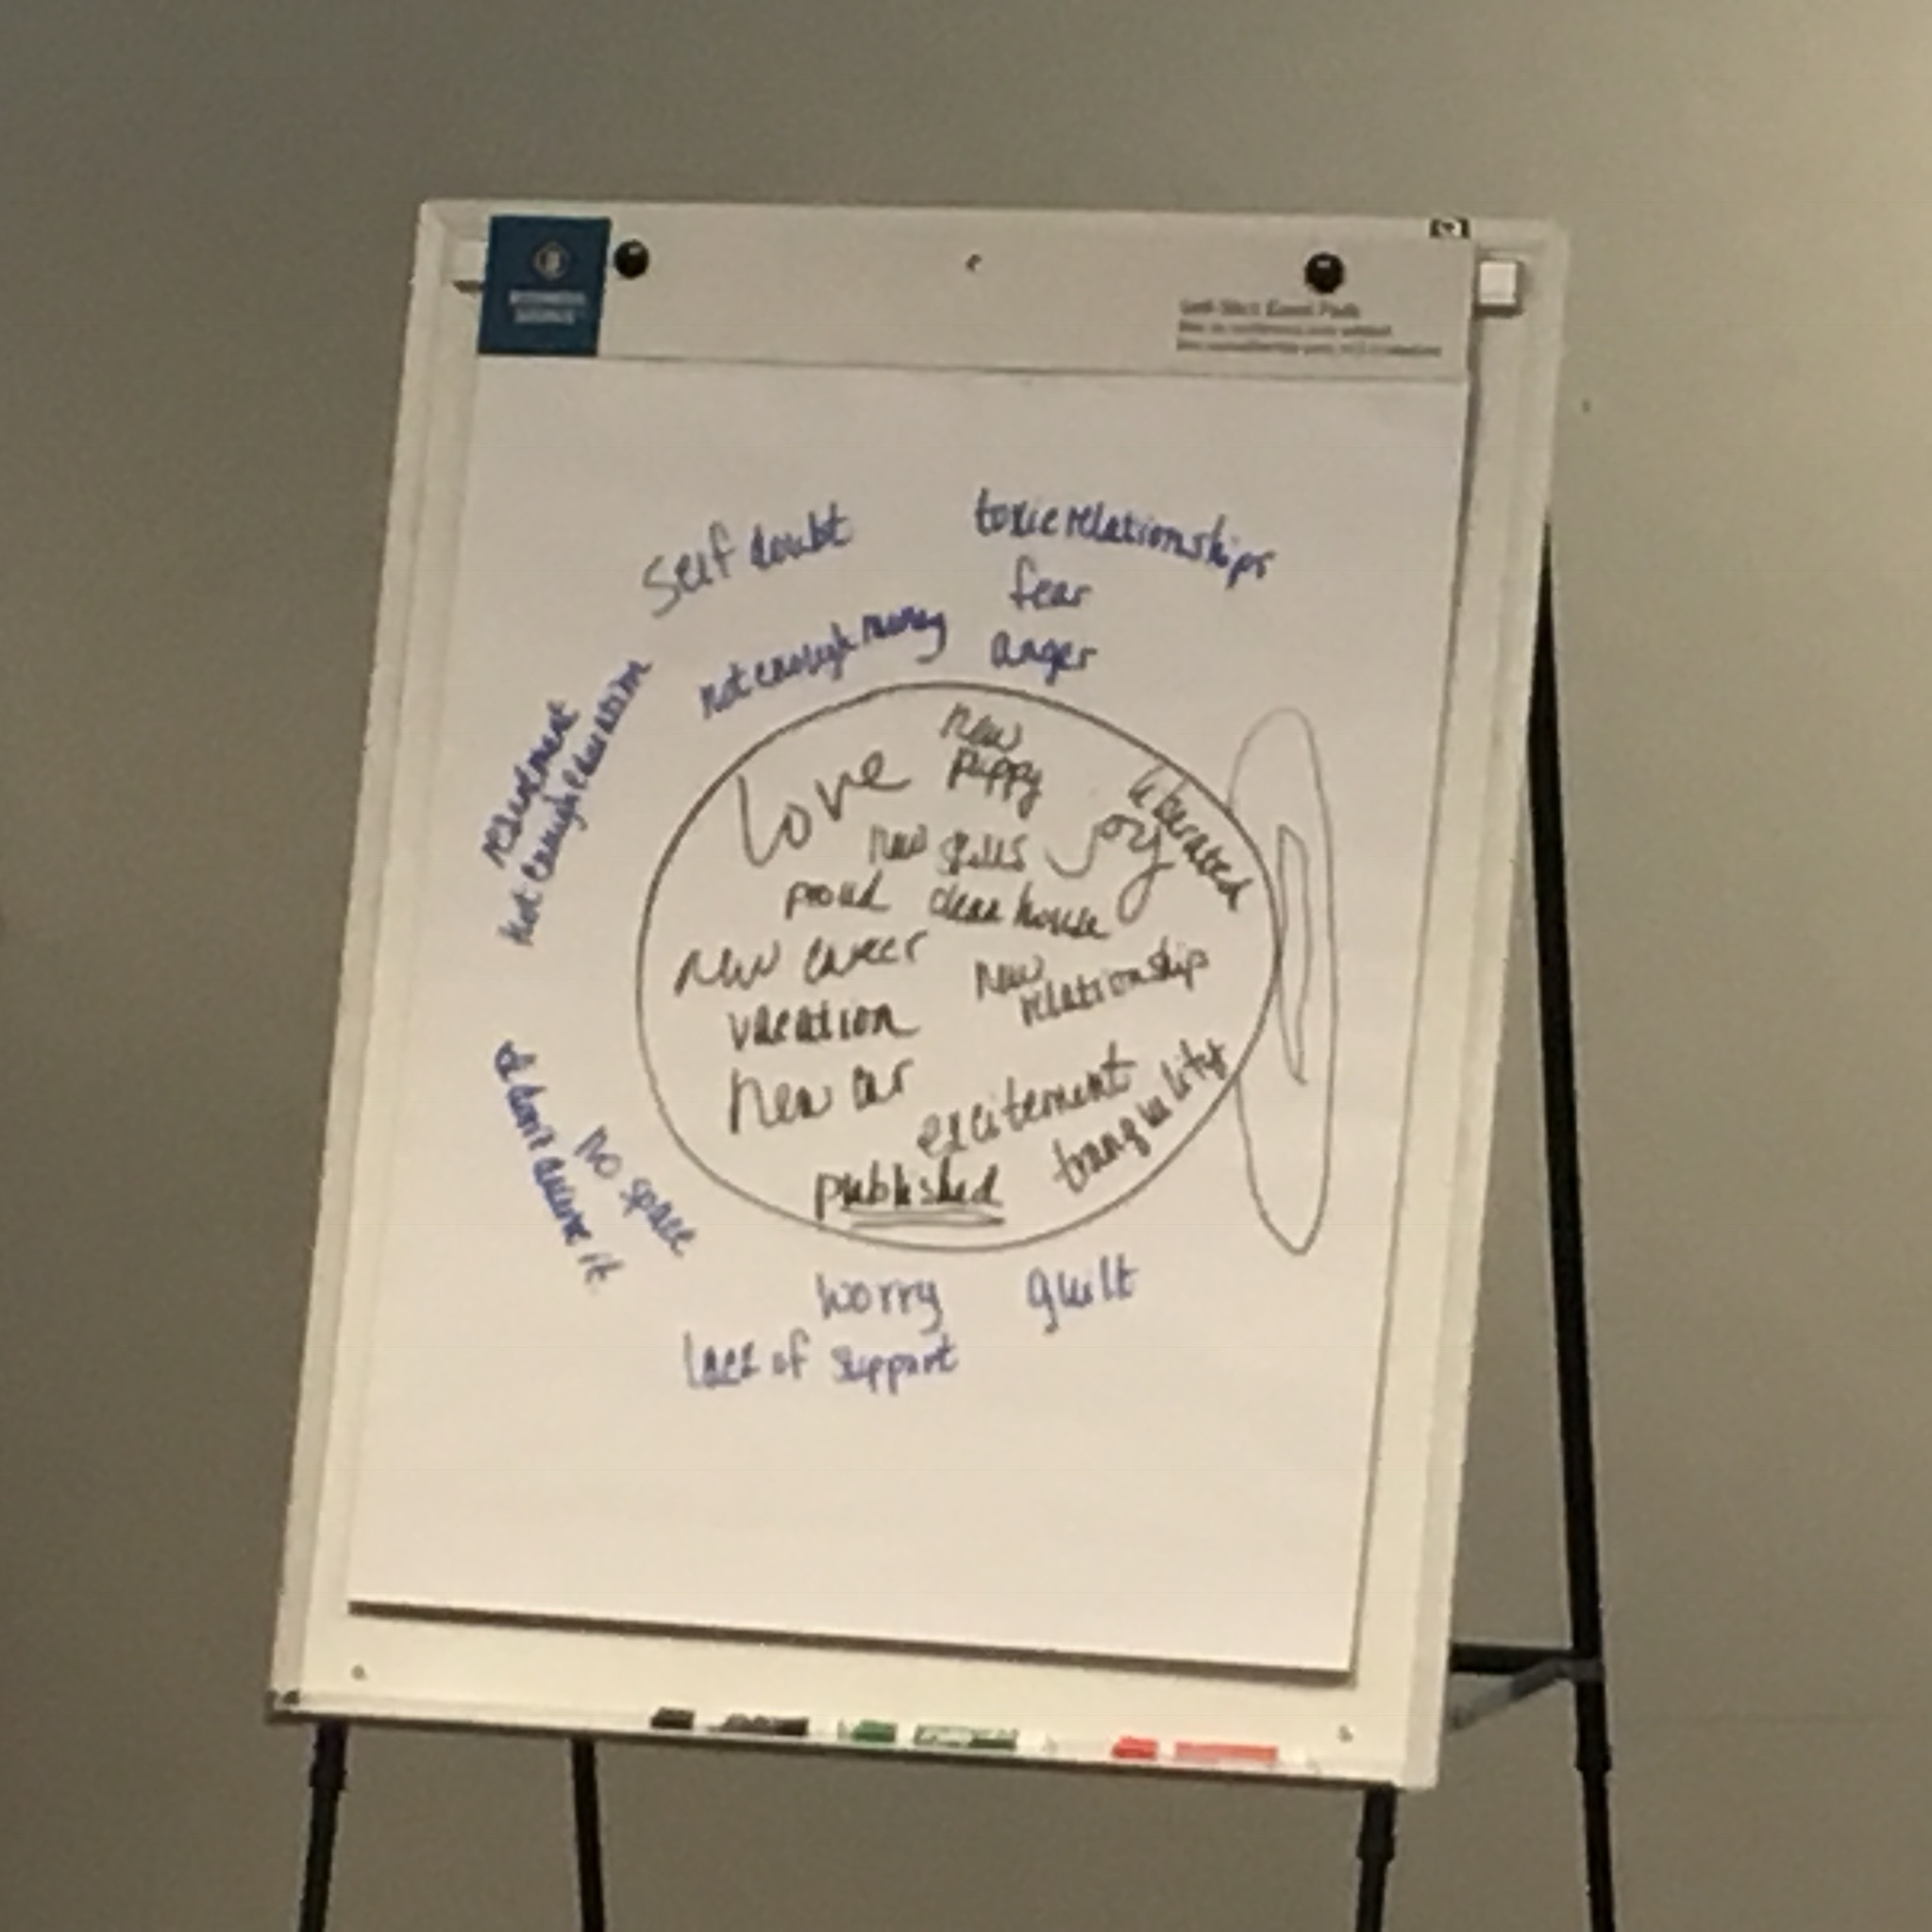 BUSINESS
SOURCE
Self doubt
toxic relationships
fear
not enough money
anger
resentment
not enough education
new
puppy
Love
liberated
Joy
new skills
proud
clean house
new career
new
relationship
vacation
new car
excitement
tranquility
published
I don't deserve it
no space
worry
guilt
lack of support